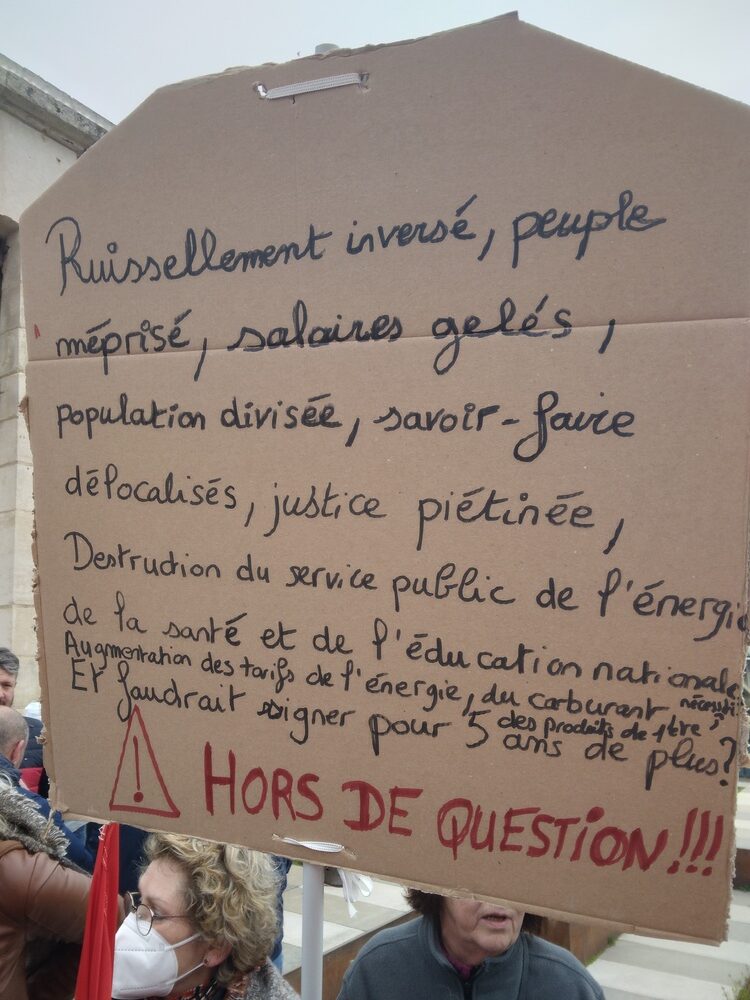 Ruissellement inversé, peuple
méprisé, salaires gelés,
population divisée, savoir-faire
délocalisés, justice piétinée,
Destruction du service public de l'énergie
de la santé et de l'éducation nationale
Augmentation des tarifs de l'énergie, du carburant,
des produits de 1ère nécessité
Et faudrait signer pour 5 ans de plus?
! HORS DE QUESTION!!!